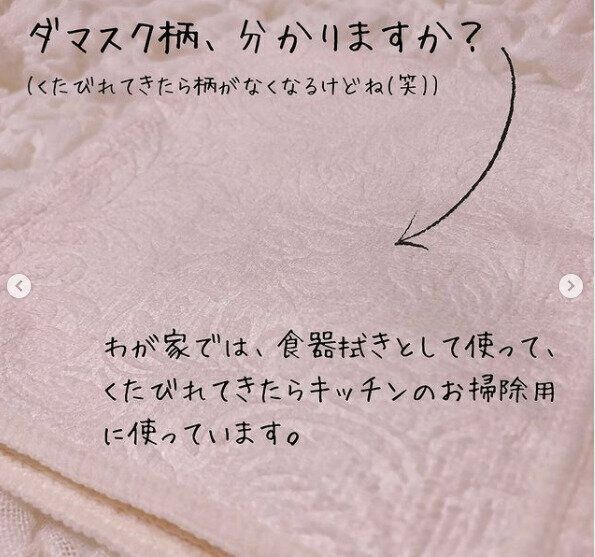 ダマスク柄、分かりますか?
(くたびれてきたら柄がなくなるけどね(笑))
わが家では、食器拭きとして使って、
くたびれてきたらキッチンのお掃除用
に使っています。